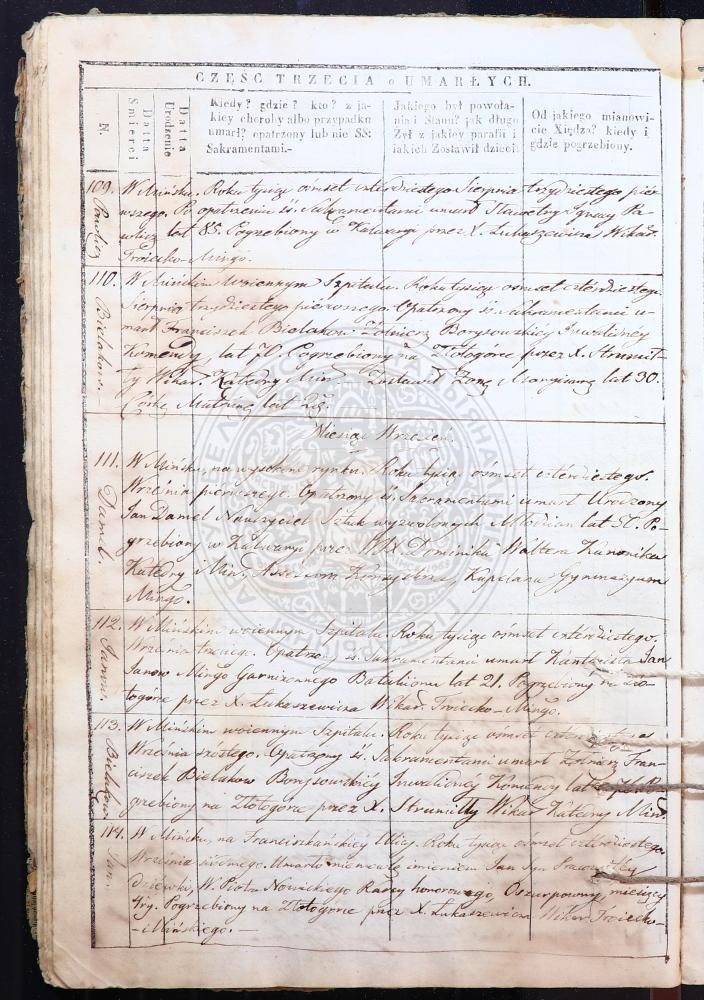 CZĘŚC TRZECIA o UMARŁYCH.
N.
Datta Smierci
Datta Urodzenie
Kiedy? gdzie? kto? z ja-
kiey choroby albo przypadku
umarł? opatrzony lub nie SS:
Sakramentami.-
Jakiego był powoła-
nia i Stanu? jak długo
Żył z jakiey parafii i
jakich Zostawił dzieci.
Od jakiego mianowi-
cie Xiędza? kiedy i
gdzie pogrzebiony.
109. W Mińsku. Roku tysiąc ośmset czterdziestego Sierpnia trzydziestego pier-
wszego. Po opatrzeniu śś. Sakramentami umarł Sławetny Ignacy Pa-
wlicz lat 85. Pogrzebiony w Kalwaryi przez X. Łukaszewicza Wikar.
Troiecko-Mingo.
110. W Mińskim woiennym Szpitalu. Roku tysiąc ośmset czterdziestego
Sierpnia trzydziestego pierwszego. Opatrzony śś. Sakramentami u-
marł Franciszek Bielakow. Żołnierz Borysowskiey Inwalidney
Komendy, lat 70. Pogrzebiony na Złotogórze przez X. Strumił-
ły Wikar. Katedry Min. Zostawił Żonę lat 30.
Córkę lat
Bielakow.
Miesiąc Wrzesień.
111. W Mińsku, na wysokim rynku. Roku tysiąc ośmset czterdziestego.
Września pierwszego. Opatrzony śś. Sakramentami umarł Urodzony
Jan Damel Nauczyciel Sztuk wyzwolonych Młodzian lat 50. Po-
grzebiony w Kalwaryi przez WJX Dominika Waltera Kanonika
Katedry Min. Assessora Konsystorza, Kapelana Gymnazyum
Mingo.
Damel.
112. W Mińskim woiennym Szpitalu. Roku tysiąc ośmset czterdziestego.
Września trzeciego. Opatrzony śś. Sakramentami umarł Kantonista Jan
Janow Mingo Garnizonnego Bataliionu lat 21. Pogrzebiony na Zło-
togórze przez X. Łukaszewicza Wikar. Troiecko-Mingo.
Janow.
113. W Mińskim woiennym Szpitalu. Roku tysiąc ośmset czterdziestego
Września szóstego. Opatrzony śś. Sakramentami umarł Żołnierz Fran-
ciszek Bielakow Borysowskiey Inwalidney Komendy lat Po-
grzebiony na Złotogórze przez X. Strumiłły Wikar. Katedry Min.
Bielakow
114. W Mińsku, na Franciszkańskiey Ulicy. Roku tysiąc ośmset czterdziestego
Września siódmego. Umarło niemowlę imieniem Jan Syn
dziewki, W. Piotra Nowickiego Radcy honorowego, miesięcy
try. Pogrzebiony na Złotogórze przez X. Łukaszewicza Wikar. Troiecko-
-Mińskiego.
Jan.